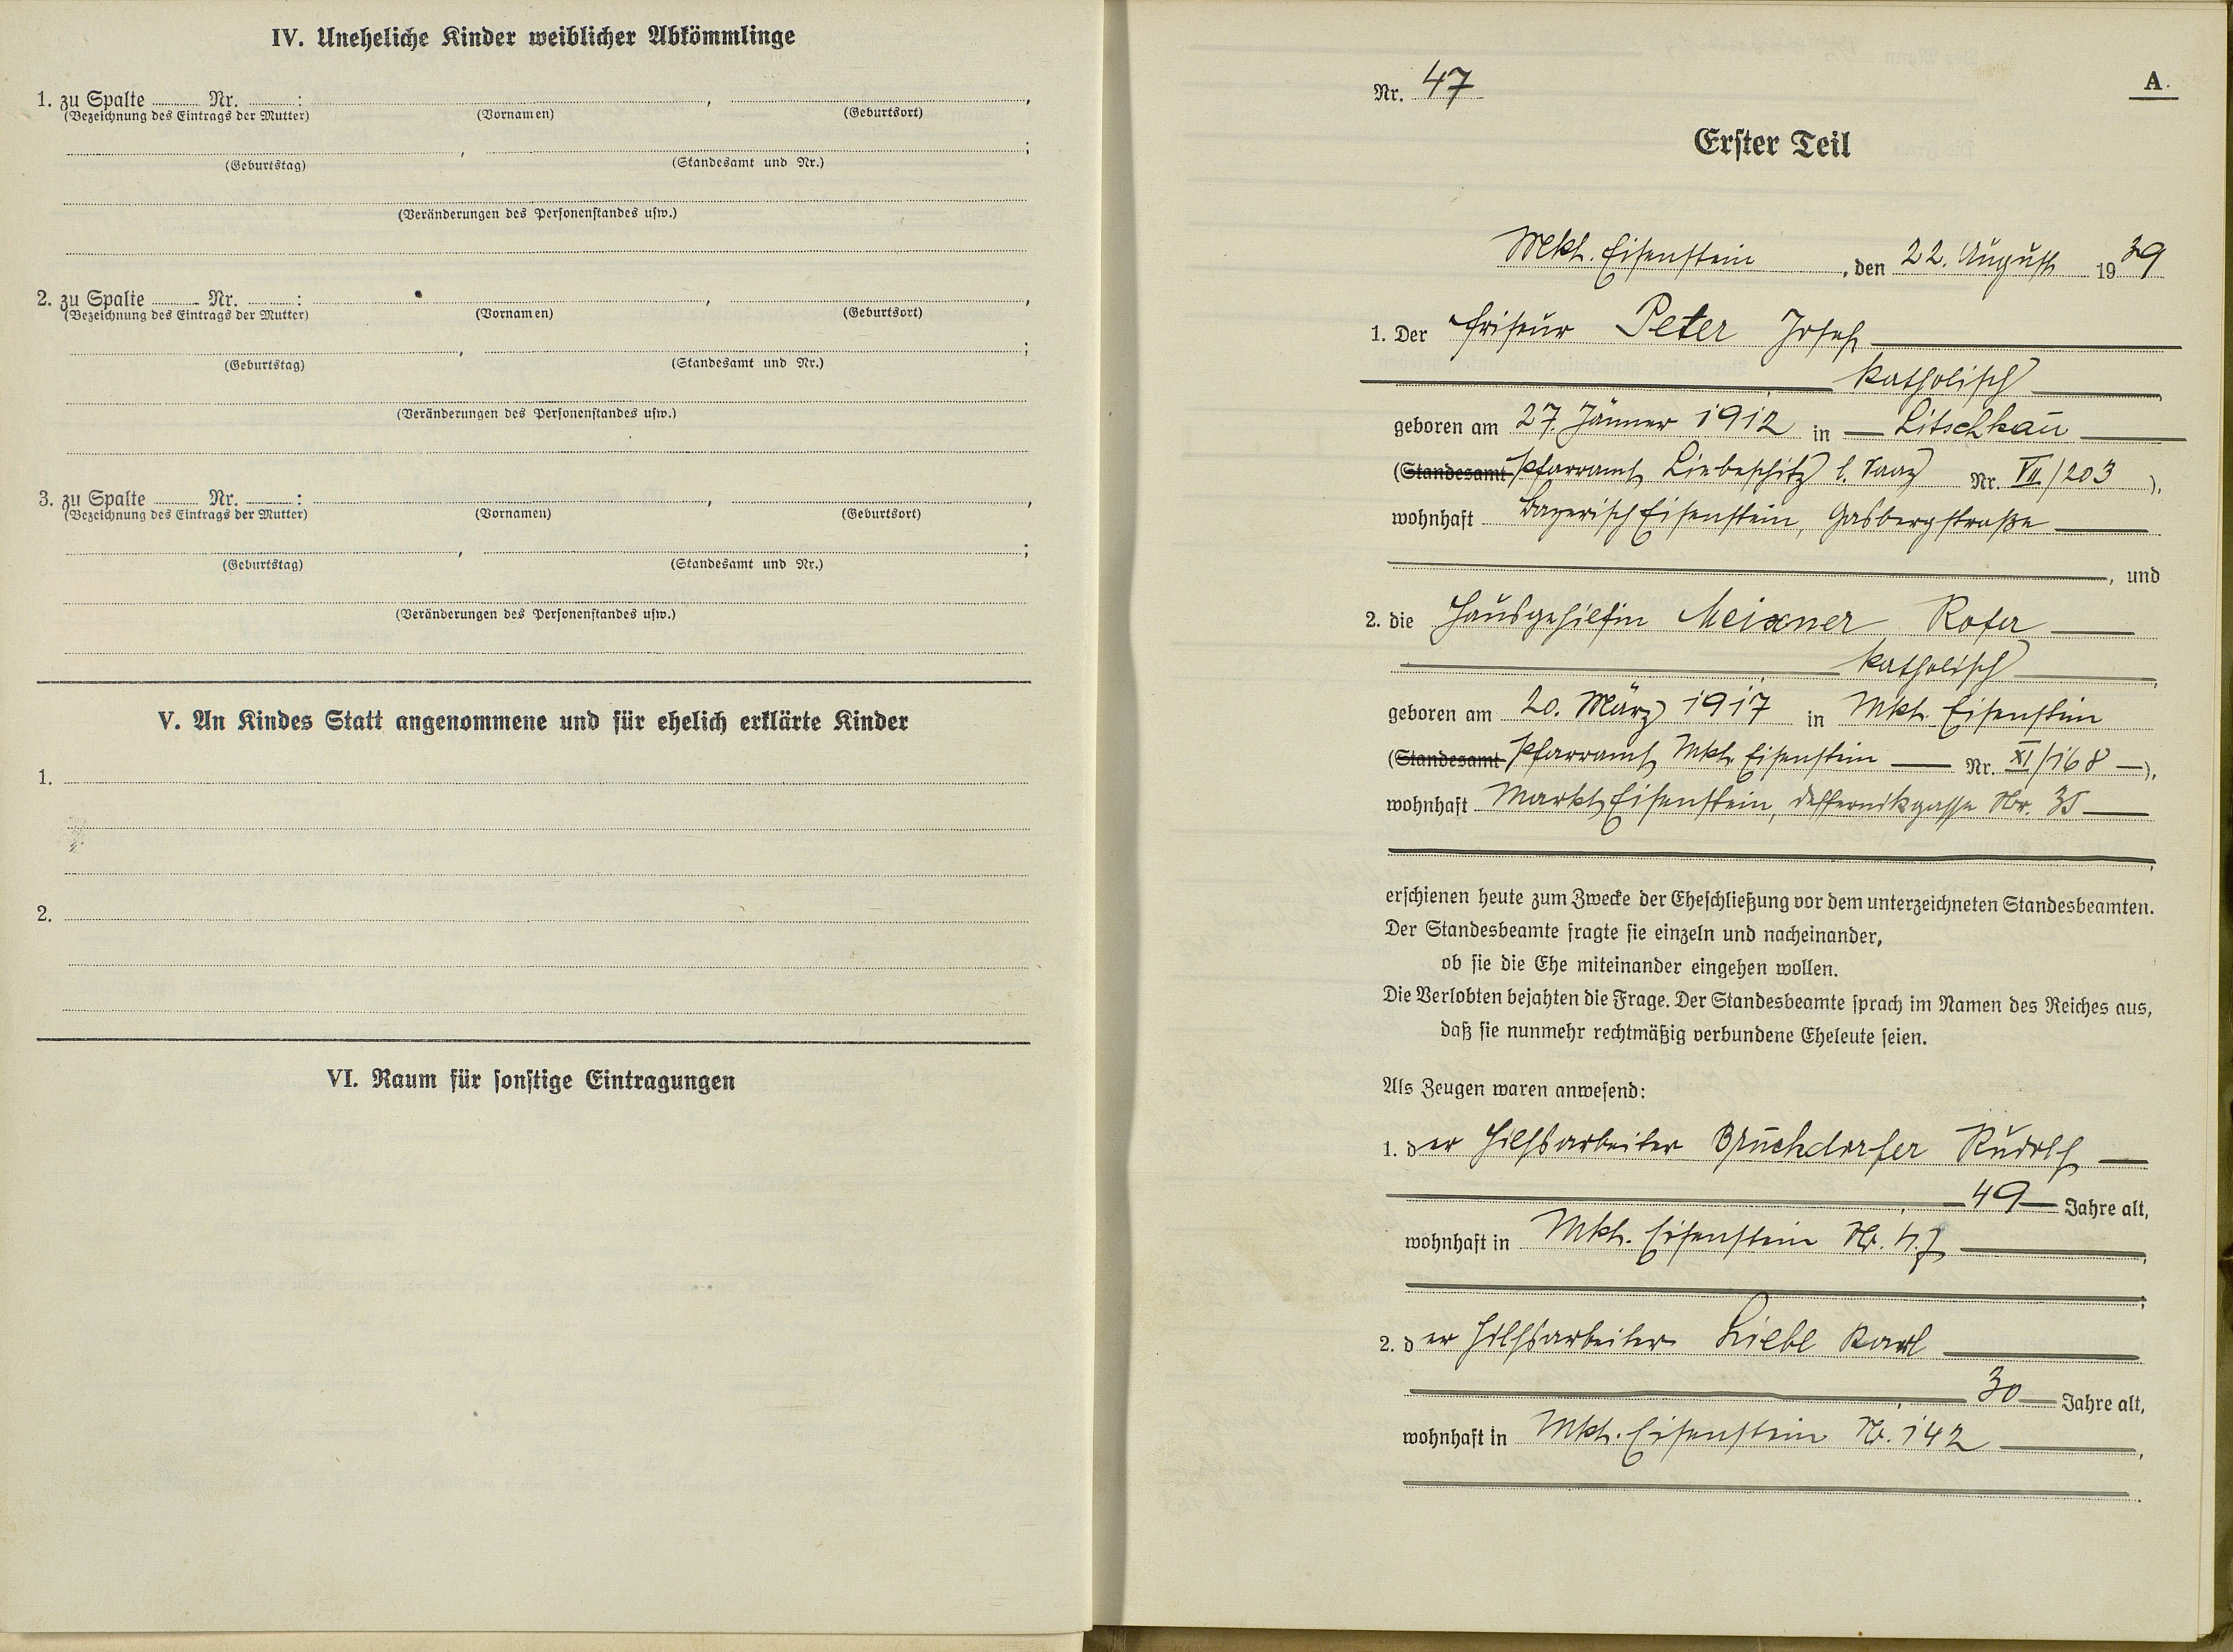 IV. Uneheliche Kinder weiblicher Abkömmlinge
1. zu Spalte ........ Nr. ........ : ........, ........,
(Bezeichnung des Eintrags der Mutter) (Vornamen) (Geburtsort)
........, ........;
(Geburtstag) (Standesamt und Nr.)
(Veränderungen des Personenstandes usw.)
2. zu Spalte ........ Nr. ........ : ........, ........,
(Bezeichnung des Eintrags der Mutter) (Vornamen) (Geburtsort)
........, ........;
(Geburtstag) (Standesamt und Nr.)
(Veränderungen des Personenstandes usw.)
3. zu Spalte ........ Nr. ........ : ........, ........,
(Bezeichnung des Eintrags der Mutter) (Vornamen) (Geburtsort)
........, ........;
(Geburtstag) (Standesamt und Nr.)
(Veränderungen des Personenstandes usw.)
V. An Kindes Statt angenommene und für ehelich erklärte Kinder
1.
2.
VI. Raum für sonstige Eintragungen
Nr. 47 A.
Erster Teil
Mkt. Eisenstein, den 22. August 1939
1. Der Friseur Peter Josef
katholisch
geboren am 27. Jänner 1912 in Litschkau
(Standesamt Pfarramt Liebeschitz b. Saaz Nr. VII/203),
wohnhaft Bayerisch Eisenstein, Hasbergstraße
, und
2. die Hausgehilfin Meixner Rosa
katholisch
geboren am 20. März 1917 in Mkt. Eisenstein
(Standesamt Pfarramt Mkt. Eisenstein Nr. XI/168),
wohnhaft Markt Eisenstein, Deffernikgasse Nr. 35
erschienen heute zum Zwecke der Eheschließung vor dem unterzeichneten Standesbeamten.
Der Standesbeamte fragte sie einzeln und nacheinander,
ob sie die Ehe miteinander eingehen wollen.
Die Verlobten bejahten die Frage. Der Standesbeamte sprach im Namen des Reiches aus,
daß sie nunmehr rechtmäßig verbundene Eheleute seien.
Als Zeugen waren anwesend:
1. der Hilfsarbeiter Rudolf
49 Jahre alt,
wohnhaft in Mkt. Eisenstein Nr.
2. der Hilfsarbeiter Liebl Karl
30 Jahre alt,
wohnhaft in Mkt. Eisenstein Nr. 142